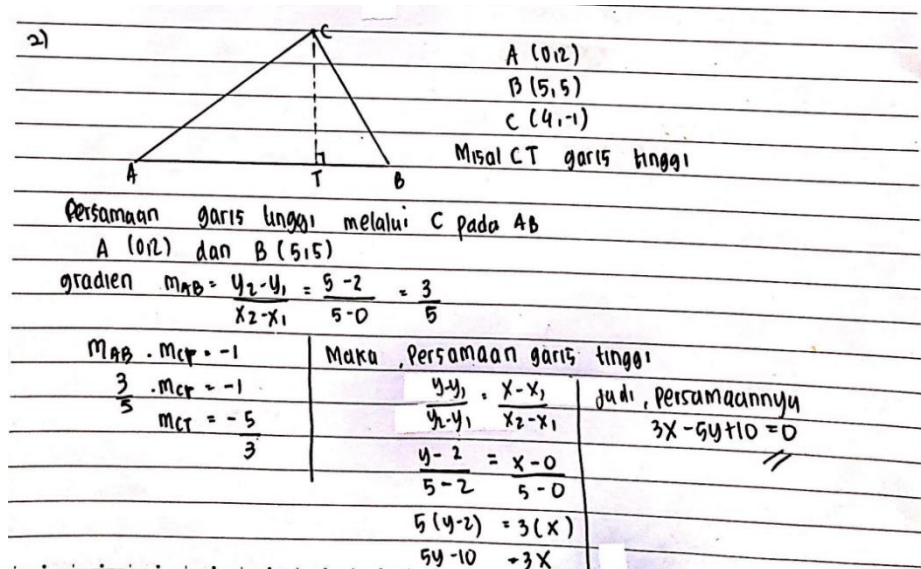 2)
C
A (0,2)
B (5,5)
C (4,-1)
Misal CT garis tinggi
A T B
Persamaan garis tinggi melalui C pada AB
A (0,2) dan B (5,5)
gradien mAB = y₂-y₁ / x₂-x₁ = 5-2 / 5-0 = 3/5
MAB . mCT = -1
3/5 . mCT = -1
mCT = -5/3
Maka, Persamaan garis tinggi
y-y₁ / y₂-y₁ = x-x₁ / x₂-x₁
y-2 / 5-2 = x-0 / 5-0
5(y-2) = 3(x)
5y-10 = 3x
Jadi, persamaannya
3x-5y+10=0